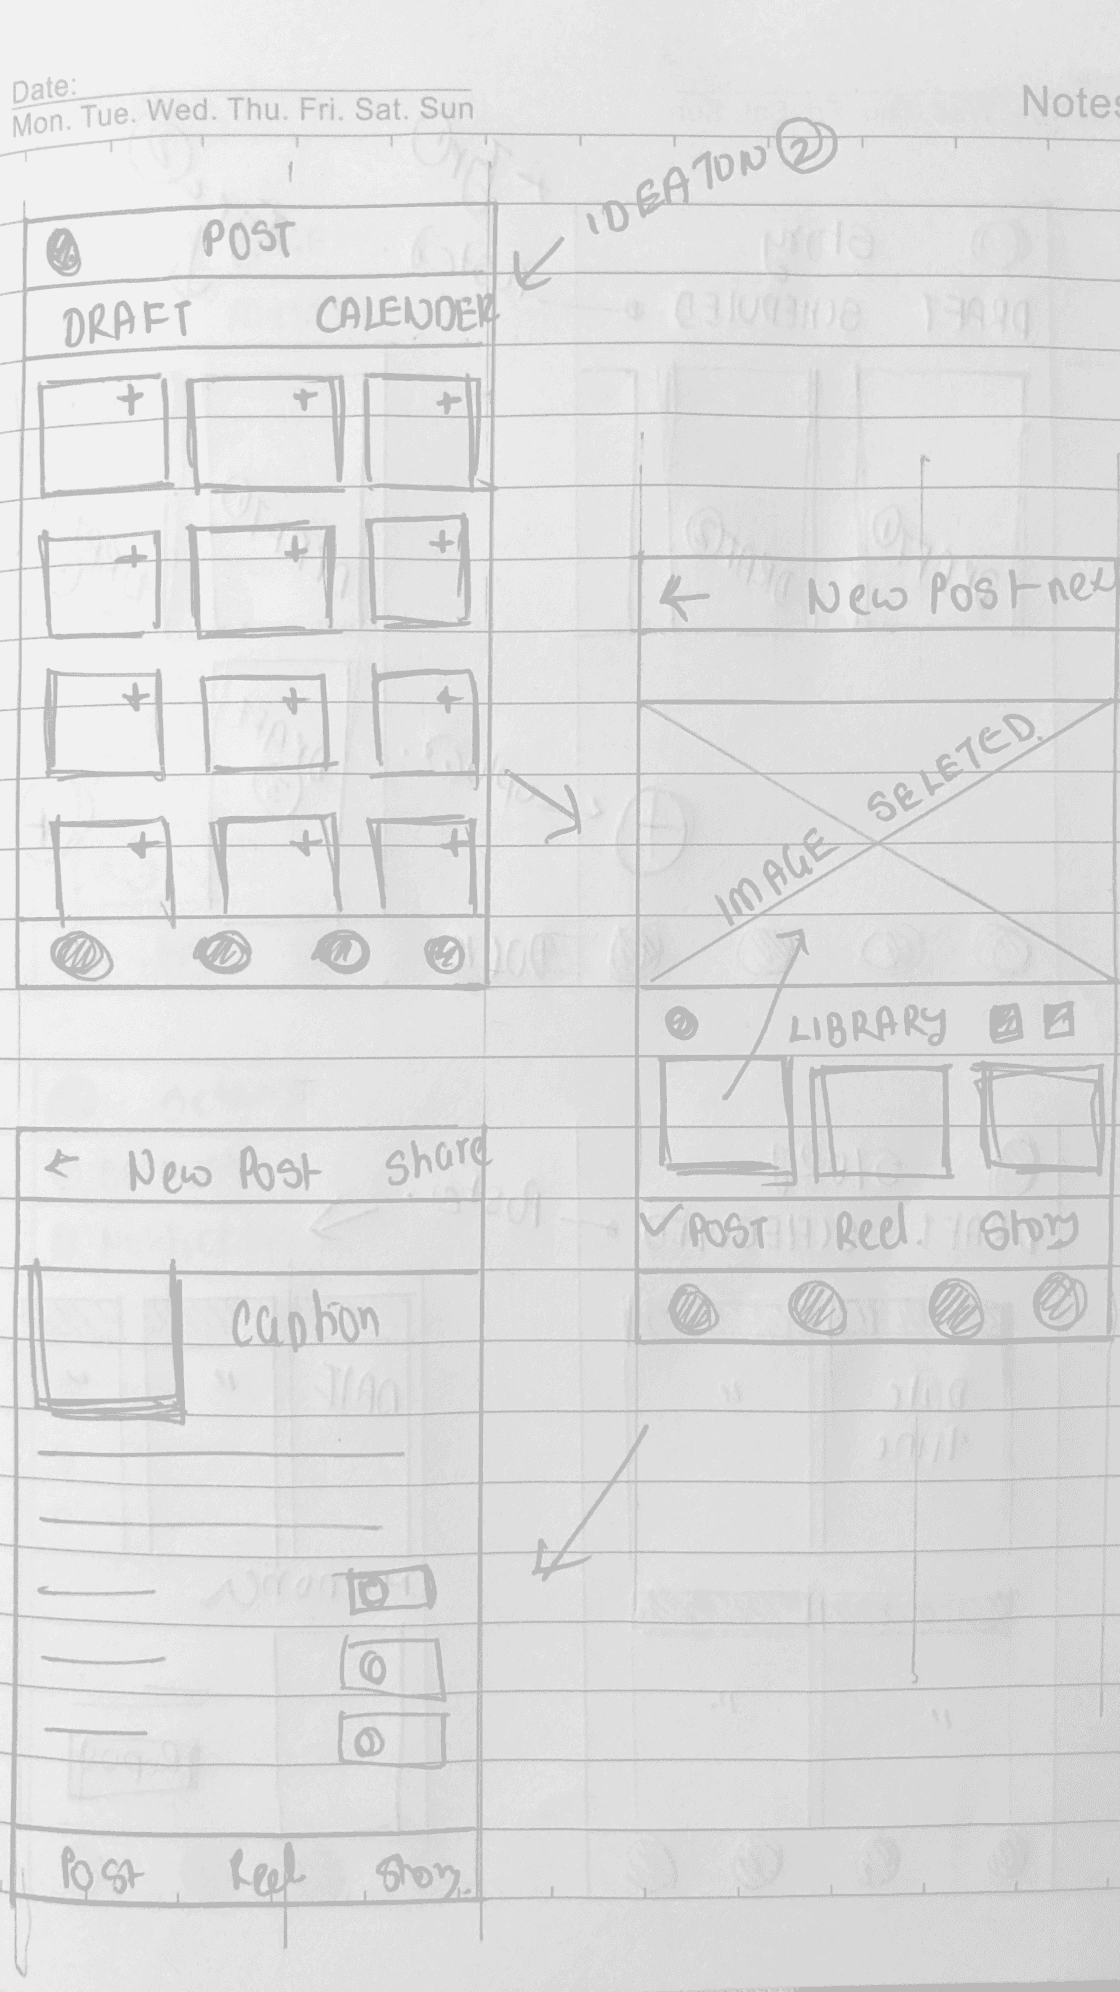 Date:
Mon. Tue. Wed. Thu. Fri. Sat. Sun
Notes
IDEATON 2
POST
DRAFT CALENDER
New Post nex
IMAGE SELETED.
LIBRARY
✓ POST Reel. Story
New Post Share
Caption
Post Reel Story.